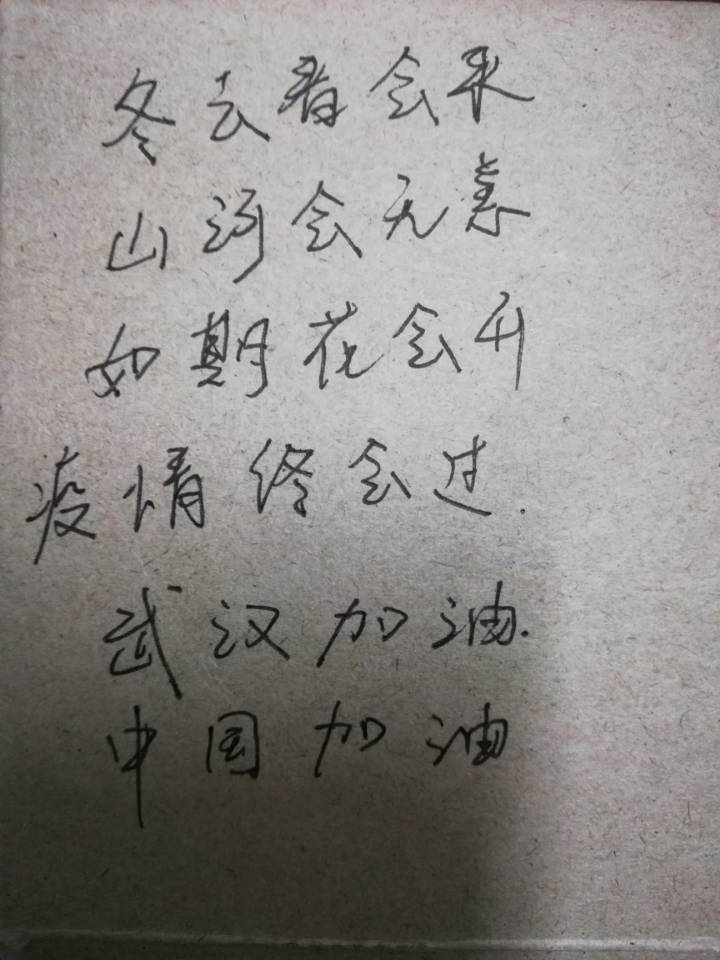 冬去春会来
山河会无恙
如期花会开
疫情终会过.
武汉加油.
中国加油